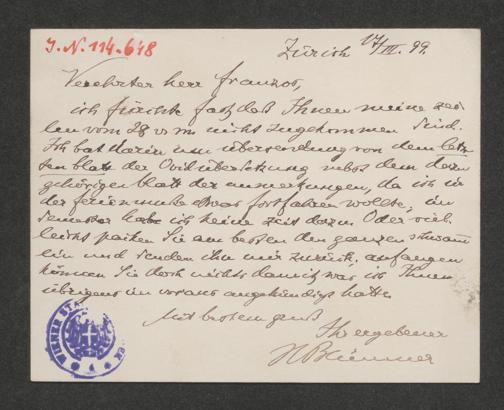 I.N. 114.648
Zürich 17/III. 99.
Verehrter herr Franzos,
ich fürchte fast, daß Ihnen meine zei-
len vom 28 v m nicht zugekommen sind.
Ich bat darin um übersendung von dem letz-
ten blatt der Ovidübersetzung nebst dem dazu
gehörigen blatt der anmerkungen, da ich in
der ferienmuße etwas fortfahren wollte, im
semester habe ich keine zeit dazu. Oder viel-
leicht packen Sie am besten den ganzen schwamm
ein und senden ihn mir zurück. anfangen
können Sie doch nichts damit, was ich Ihnen
übrigens im voraus angekündigt hatte.
Mit bestem gruß
Ihr ergebener
H Blümner
WIENER